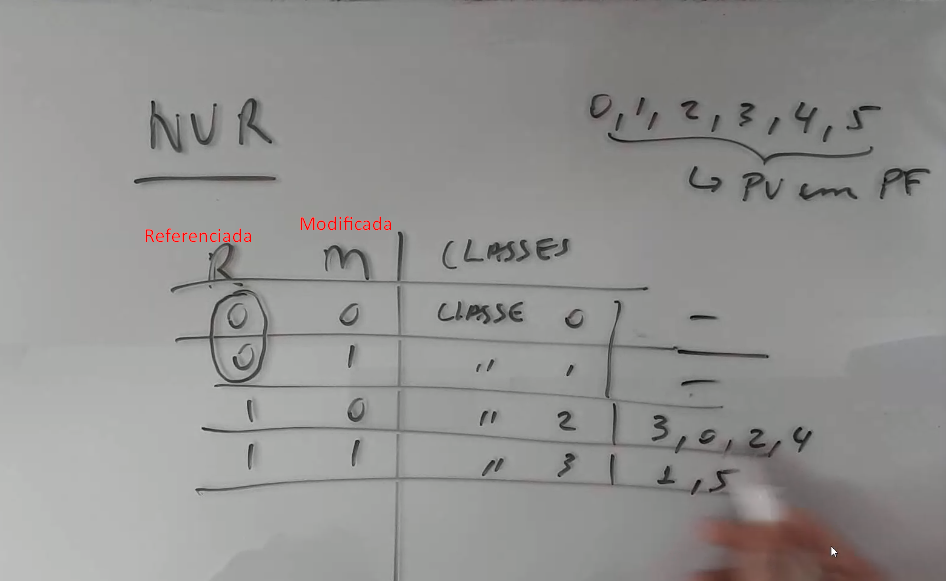 NUR
0, 1, 2, 3, 4, 5
↳ PV em PF
Referenciada Modificada
R M CLASSES
0 0 CLASSE 0 -
0 1 " 1 -
1 0 " 2 3, 0, 2, 4
1 1 " 3 1, 5